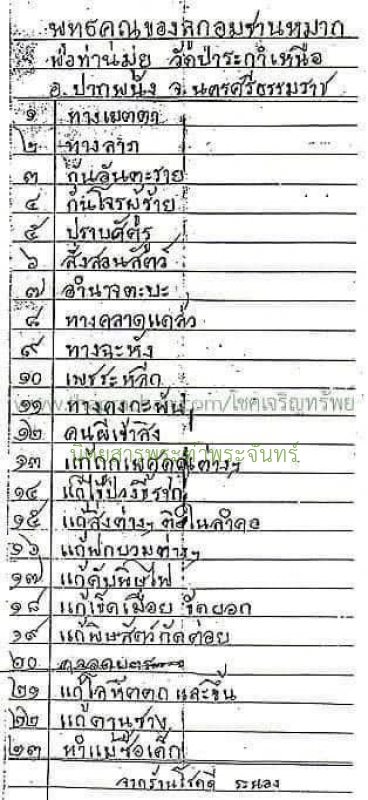 พุทธคุณของลูกอมชานหมาก
พ่อท่านมุ่ย วัดป่าระกำเหนือ
อ.ปากพนัง จ.นครศรีธรรมราช
๑ ทางเมตตา
๒ ทางลาภ
๓ กันอันตะราย
๔ กันโจรผู้ร้าย
๕ ปราบศัตรู
๖ สั่งสอนสัตว์
๗ อำนาจตะบะ
๘ ทางคลาดแคล้ว
๙ ทางฉะหัง
๑๐ เพชระหลีก
๑๑ ทางคงกะพัน
๑๒ คนผีเข้าสิง
๑๓ แก้ถูกเพื่อคุณต่างๆ
๑๔ แก้ไข้ป่วง
๑๕ แก้สิ่งต่างๆ ติดในลำคอ
๑๖ แก้ฟกบวมต่างๆ
๑๗ แก้ดับพิษไฟ
๑๘ แก้เข็ดเมื่อย ขัดยอก
๑๙ แก้พิษสัตว์กัดต่อย
๒๐ คลอดบุตร
๒๑ แก้โลหิตตก และขึ้น
๒๒ แก้ตานซาง
๒๓ ทำแม่ซื้อเด็ก
จากร้านโชคดี ระนอง
/โชคเจริญทรัพย์
นิตยสารพระท่าพระจันทร์